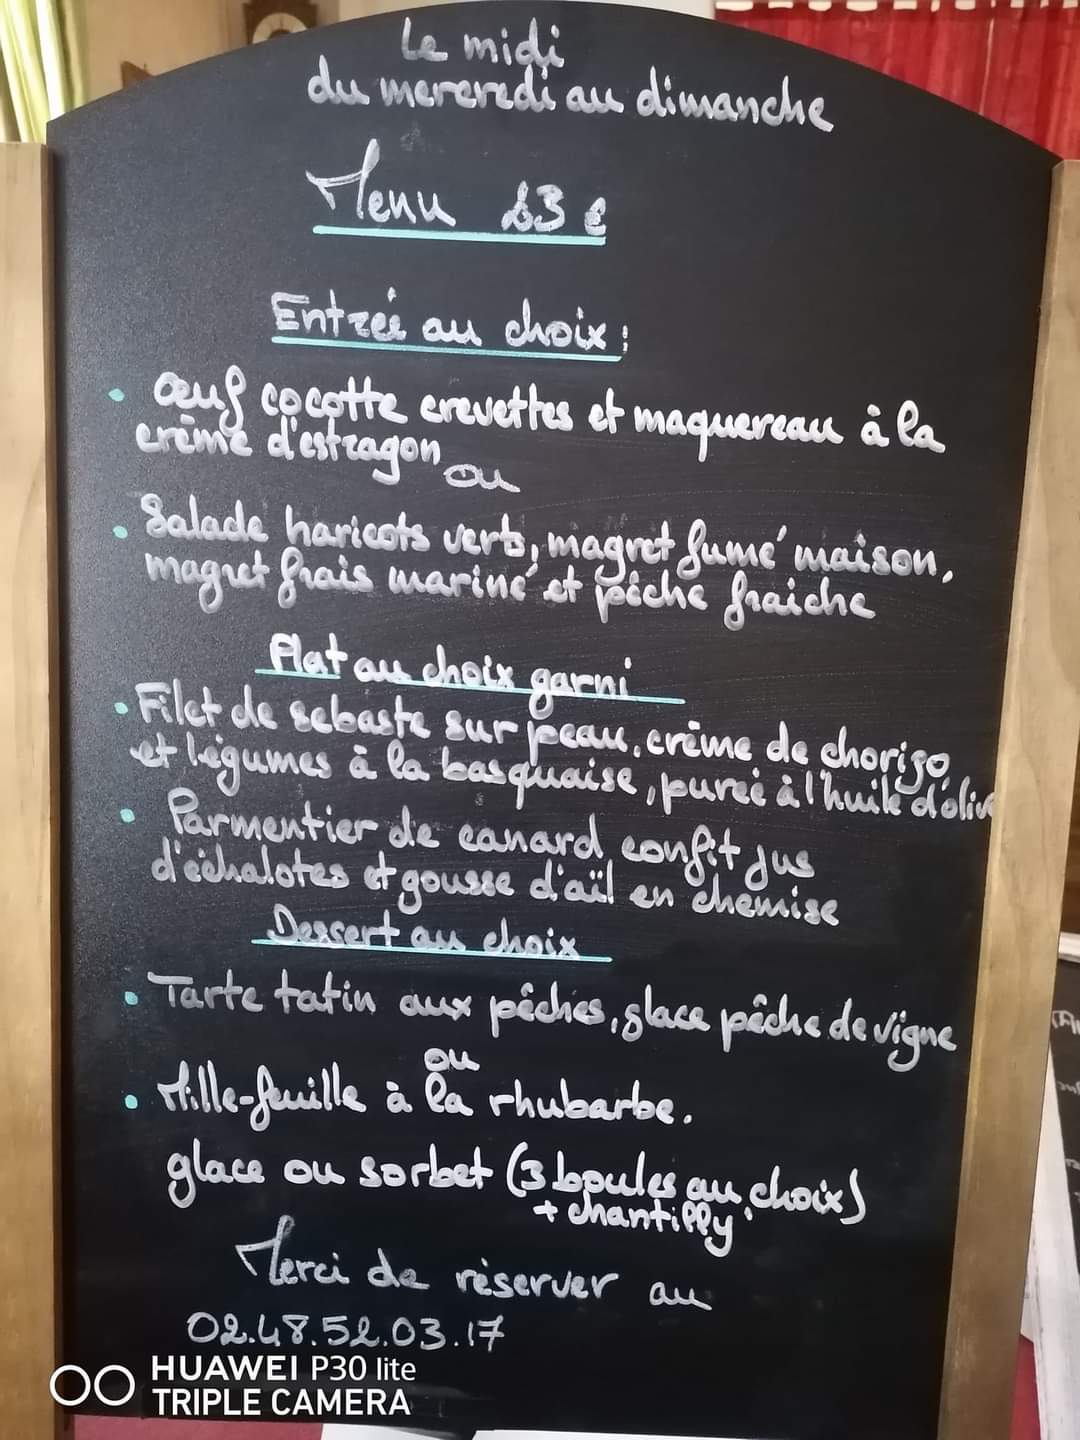 Le midi
du mercredi au dimanche
Menu 23 €
Entrée au choix :
• œuf cocotte crevettes et maquereau à la
crème d'estragon
ou
• Salade haricots verts, magret fumé maison,
magret frais mariné et pêche fraiche
Plat au choix garni
• Filet de sebaste sur peau, crème de chorizo
et légumes à la basquaise, purée à l'huile d'olive
• Parmentier de canard confit jus
d'échalotes et gousse d'aïl en chemise
Dessert au choix
• Tarte tatin aux pêches, glace pêche de vigne
ou
• Mille-feuille à la rhubarbe.
glace ou sorbet (3 boules au choix)
+ chantilly
Merci de réserver au
02.48.52.03.17
HUAWEI P30 lite
TRIPLE CAMERA